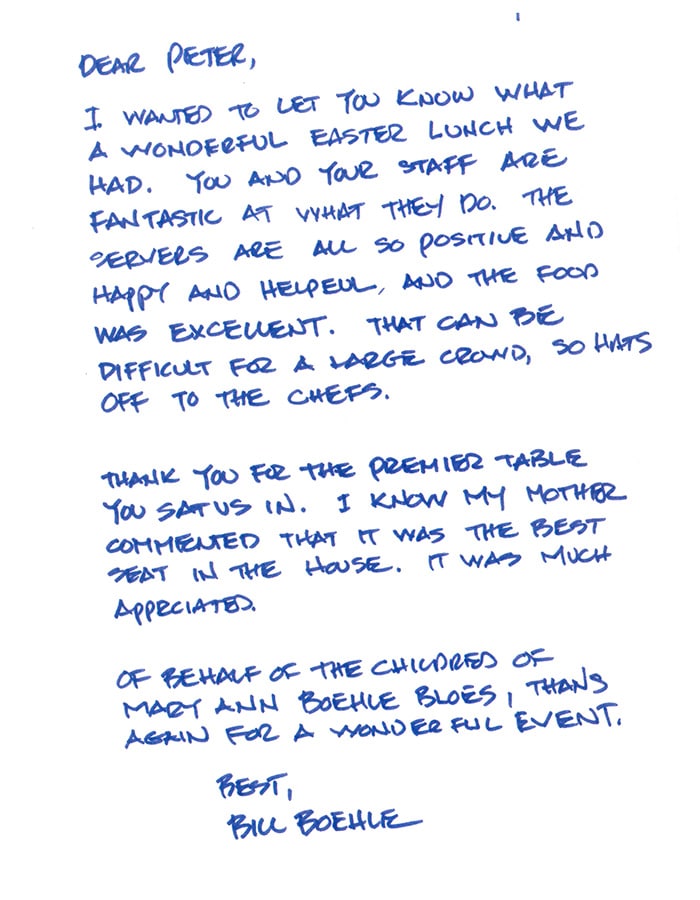 DEAR PETER,
I WANTED TO LET YOU KNOW WHAT
A WONDERFUL EASTER LUNCH WE
HAD. YOU AND YOUR STAFF ARE
FANTASTIC AT WHAT THEY DO. THE
SERVERS ARE ALL SO POSITIVE AND
HAPPY AND HELPFUL, AND THE FOOD
WAS EXCELLENT. THAT CAN BE
DIFFICULT FOR A LARGE CROWD, SO HATS
OFF TO THE CHEFS.
THANK YOU FOR THE PREMIER TABLE
YOU SAT US IN. I KNOW MY MOTHER
COMMENTED THAT IT WAS THE BEST
SEAT IN THE HOUSE. IT WAS MUCH
APPRCIATED.
OF BEHALF OF THE CHILDRED OF
MARY ANN BOEHLE BLOES, THANS
AGAIN FOR A WONDERFUL EVENT.
BEST,
BILL BOEHLE